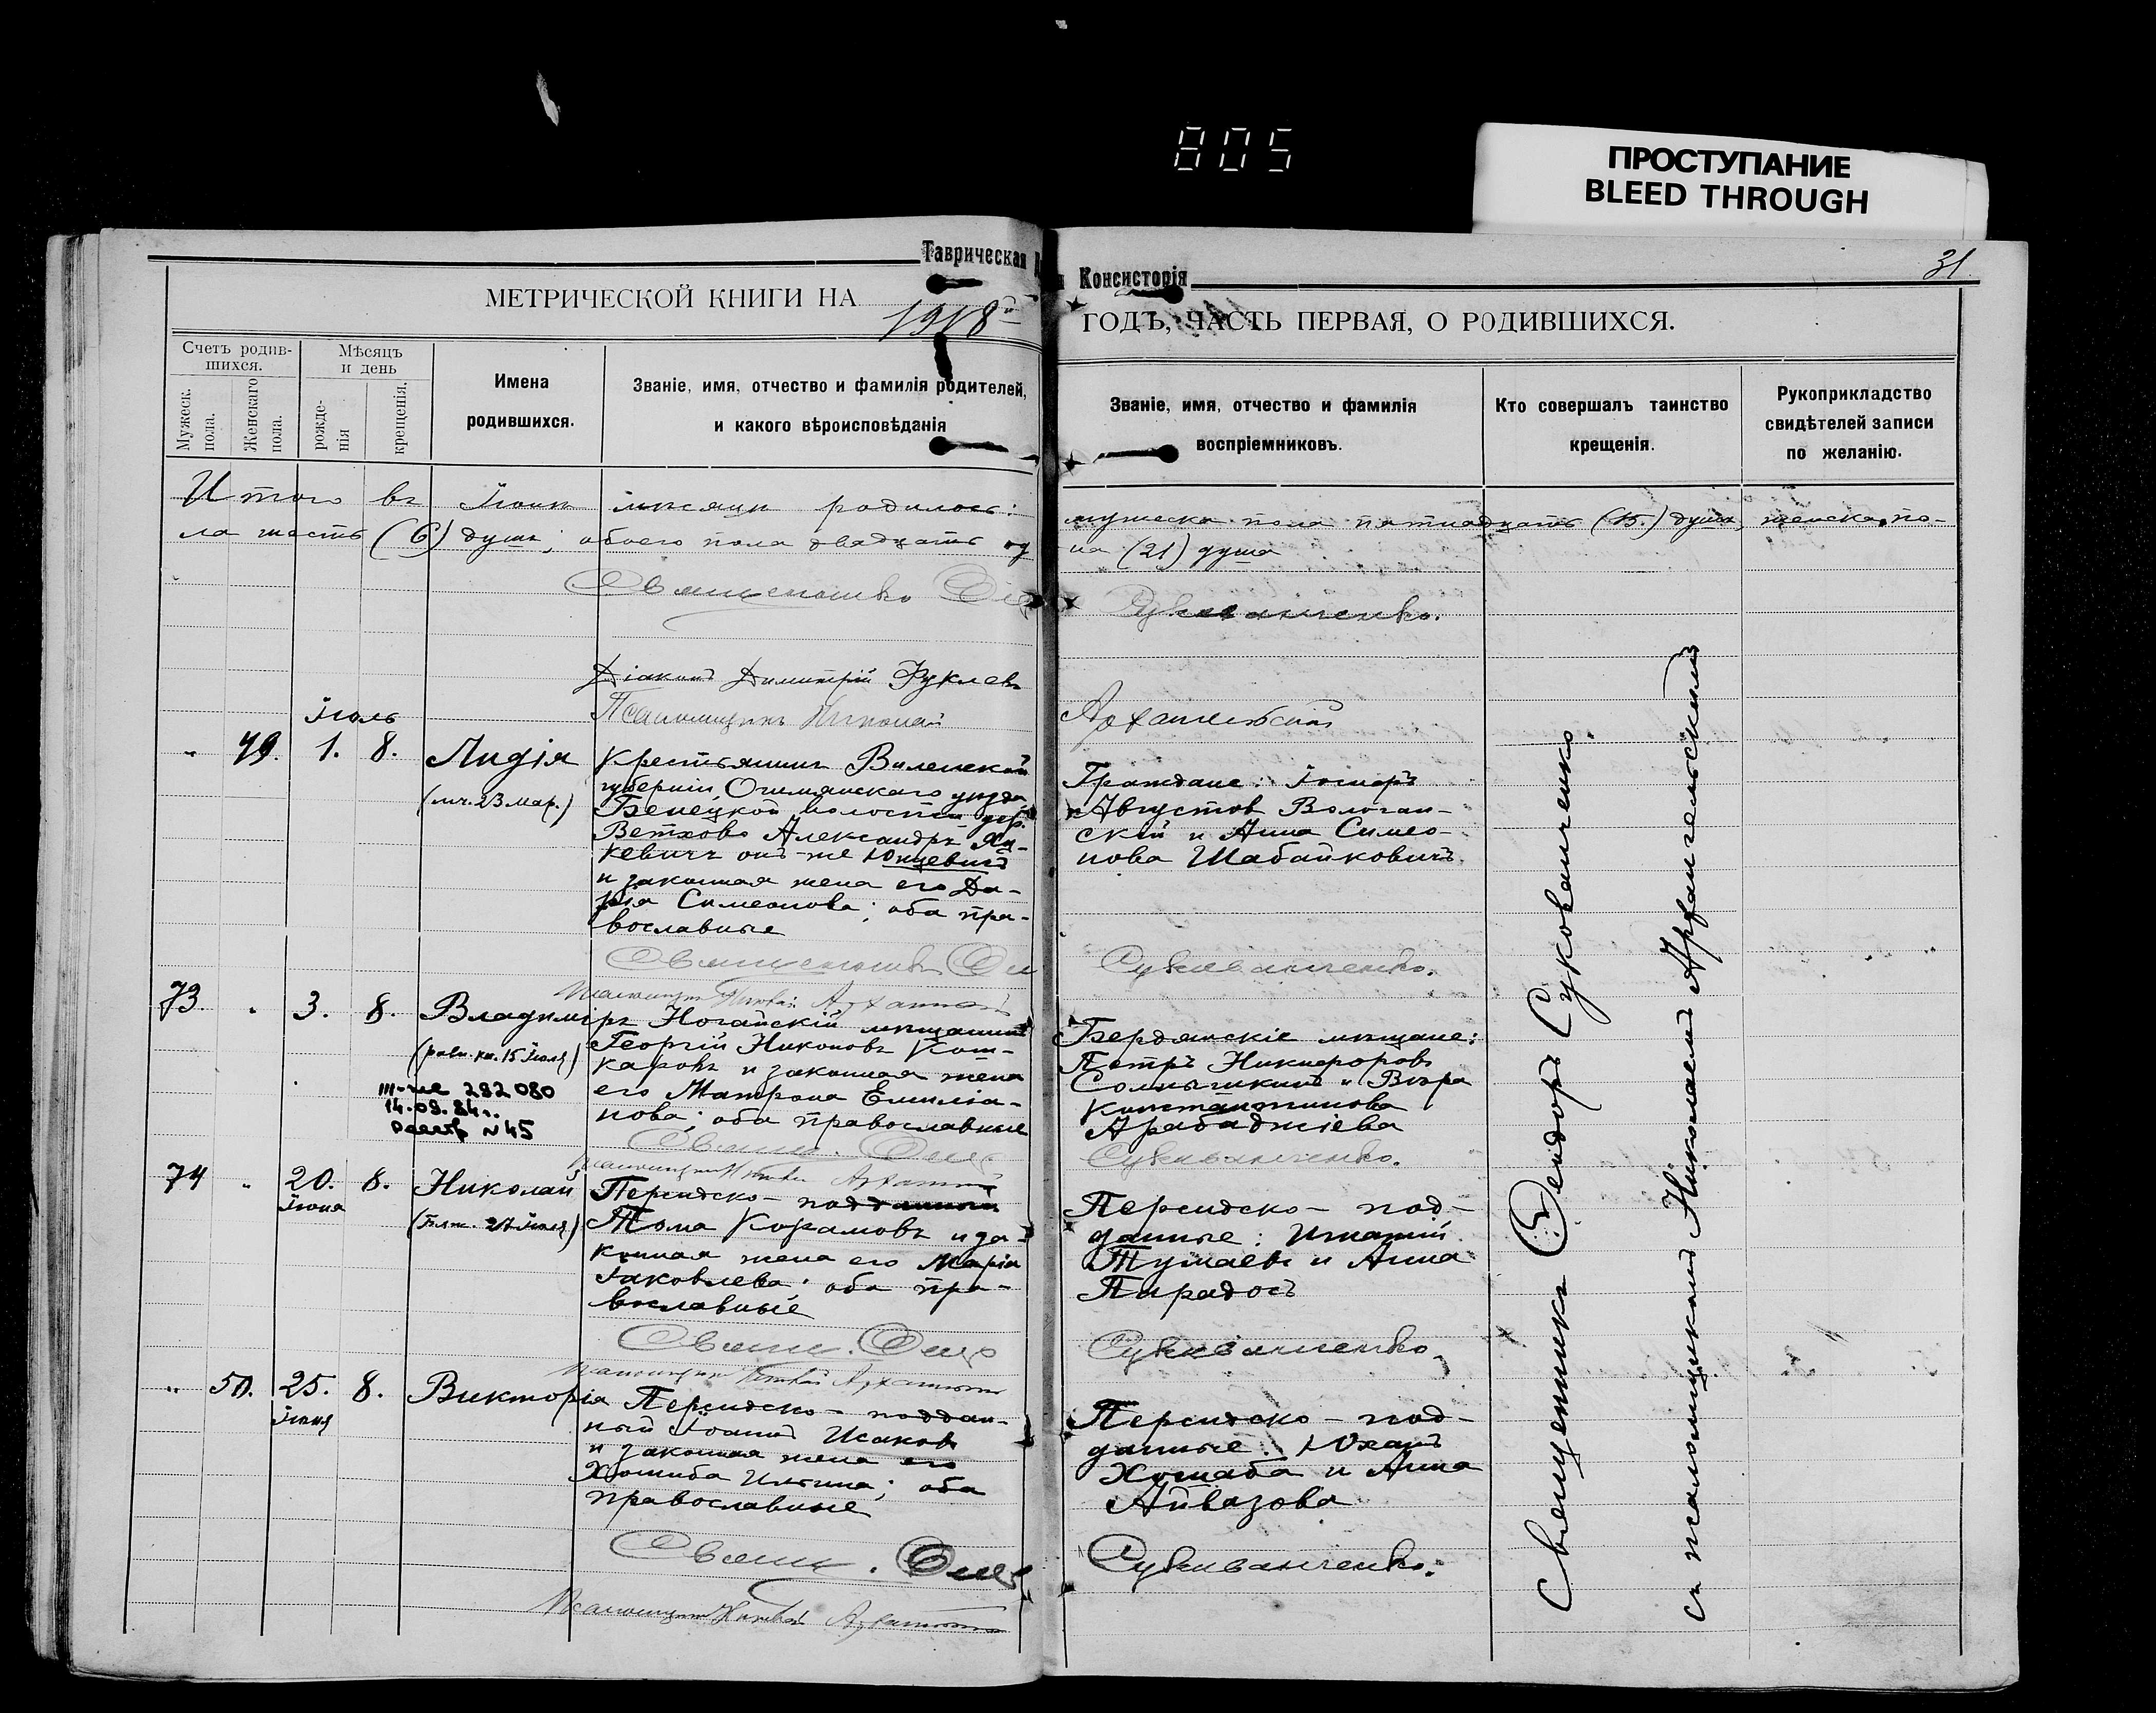 805
ПРОСТУПАНИЕ
BLEED THROUGH
Таврическая
Консисторія
31
МЕТРИЧЕСКОЙ КНИГИ НА 1918й
ГОДЪ, ЧАСТЬ ПЕРВАЯ, О РОДИВШИХСЯ.
Счетъ родив-
шихся.
Мужеск.
пола.
Женскаго
пола.
Мѣсяцъ
и день
рожде-
нія
крещенія.
Имена
родившихся.
Званіе, имя, отчество и фамилія родителей,
и какого вѣроисповѣданія
Званіе, имя, отчество и фамилія
воспріемниковъ.
Кто совершалъ таинство
крещенія.
Рукоприкладство
свидѣтелей записи
по желанію.
Итого въ Іюнѣ мѣсяцѣ родилось: мужеска пола пятнадцать (15.) душъ, женска по-
ла шесть (6) душъ; обоего пола двадцать од на (21) душа
Священникъ Сукованченко.
Діаконъ Димитрій
Псаломщикъ Николай Архангельскій
Іюль
" 49. 1. 8.
Лидія
(мч. 23 мар.)
Крестьянинъ Виленской
губерніи, Ошмянскаго уѣзда,
Бенецкой волости, дер.
Ветхово Александръ
кевичъ онъ-же Юцевичъ
и законная жена его Да-
рія Симеонова; оба пра-
вославные
Граждане: Іосифъ
Августов
скій и Анна Симео-
нова Шабайковичъ.
Священникъ Сукованченко.
Псаломщикъ Николай Архангельскій
73. " 3. 8.
Владиміръ
(равн. кн. 15 Іюля)
III-ЖС 292080
14.09.84г.
Реестр №45
Ногайскій мѣщанинъ
Георгій Никоновъ Кош-
каровъ и законная жена
его Матрона Емиліа-
нова; оба православные
Бердянскіе мѣщане:
Петръ Никифоровъ
и Вѣра
Константинова
Арабаджіева
Свящ. Сукованченко.
Псаломщикъ Николай Архангельскій
74 " 20. 8.
Іюня
Николай
Персидско-подданный
Тома Корамовъ и за-
конная жена его Марія
Іаковлева; оба пра-
вославные
Персидско-под-
данные: Игнатій
Тумаевъ и Анна
Пирадосъ
Свящ. Сукованченко.
Псаломщикъ Николай Архангельскій
" 50. 25. 8.
Іюня
Викторія
Персидско-поддан-
ный Іоаннъ Исаковъ
и законная жена его
Хошиба Ильина; оба
православные
Персидско-под-
данные: Юханъ
Хошаба и Анна
Айвазова
Свящ. Сукованченко.
Псаломщикъ Николай Архангельскій
Священникъ Ѳеодоръ Сукованченко.
съ псаломщикомъ Николаемъ Архангельскимъ